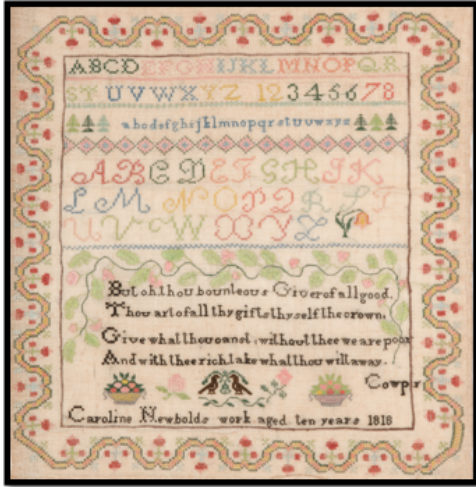 ABCDEFGHIJKLMNOPQR
STUVWXYZ 12345678
abcdefghijklmnopqrstuvwxyz
ABCDEFGHIK
LMNOPQRST
UVWXYZ
But oh. thou bounteous Giver of all good.
Thou art of all thy gifts thyself the crown.
Give what thou canst, without thee we are poor
And with thee rich take what thou will away.
Cowpr
Caroline Newbolds work aged ten years 1818